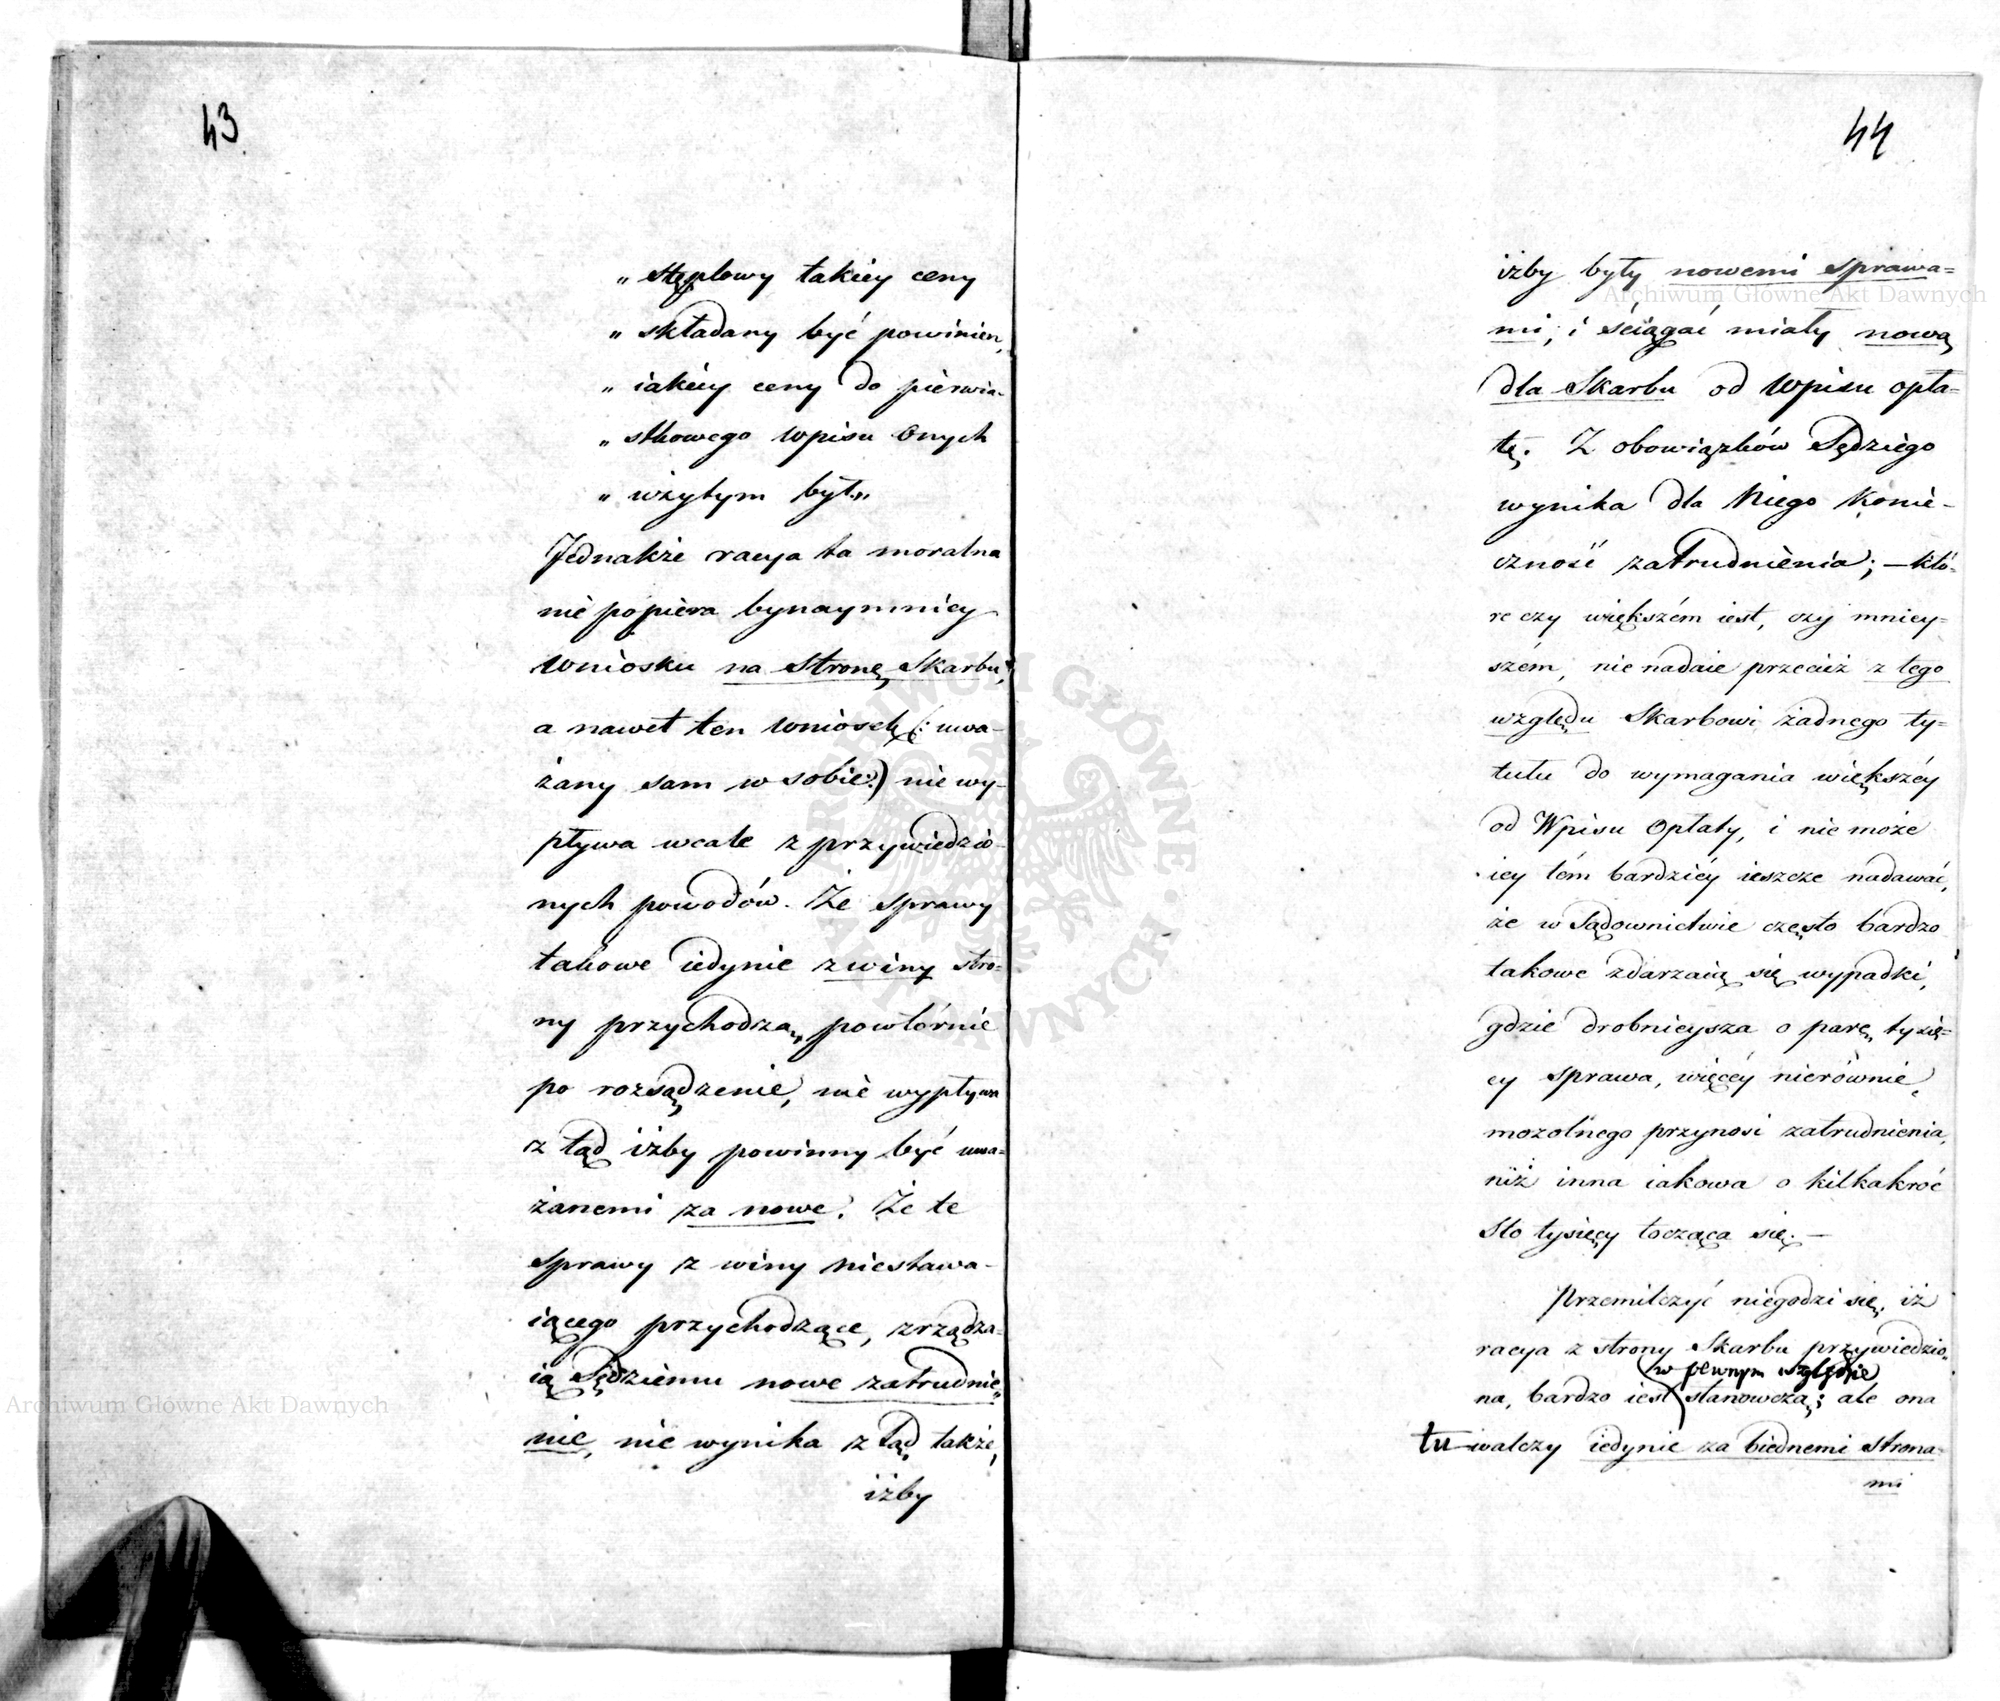 43
„ stęplowy takiey ceny
„ składany być powinien,
„ iakiey ceny do pierwia-
„ stkowego wpisu onych
„ użytym był.„
Jednakże racya ta moralna
nie popiera bynaymniey
wniosku na stronę Skarbu;
a nawet ten wniosek (: uwa-
żany sam w sobie:) nie wy-
pływa wcale z przywiedzio-
nych powodów. Że sprawy
takowe iedynie z winy stro-
ny przychodzą powtórnie
po rozsądzenie, nie wypływa
z tąd iżby powinny być uwa-
żanemi za nowe. Że te
sprawy z winy niestawa-
iącego przychodzące, zrządza-
ią Sędziemu nowe zatrudnie-
nie, nie wynika z tąd także,
iżby
44
iżby były nowemi sprawa=
mi; i ściągać miały nową
dla Skarbu od Wpisu opła-
tę. Z obowiązków Sędziego
wynika dla Niego konie-
czność zatrudnienia; – któ-
re czy większém iest, czy mniey-
szém, nie nadaie przecież z tego
względu Skarbowi żadnego ty-
tułu do wymagania większéy
od Wpisu Opłaty, i nie może
iey tém bardziéy ieszcze nadawać,
że w Sądownictwie często bardzo
takowe zdarzaią się wypadki,
gdzie drobnieysza o parę tysię-
cy sprawa, więcéy nierównie
mozolnego przynosi zatrudnienia,
niż inna iakowa o kilkakroć
sto tysięcy tocząca się. –
Przemilczyć niegodzi się, iż
racya z strony Skarbu przywiedzio-
w pewnym względzie
na, bardzo iest stanowczą; ale ona
tu walczy iedynie za biednemi strona-
mi
Archiwum Główne Akt Dawnych
Archiwum Główne Akt Dawnych
ARCHIWUM GŁÓWNE AKT DAWNYCH